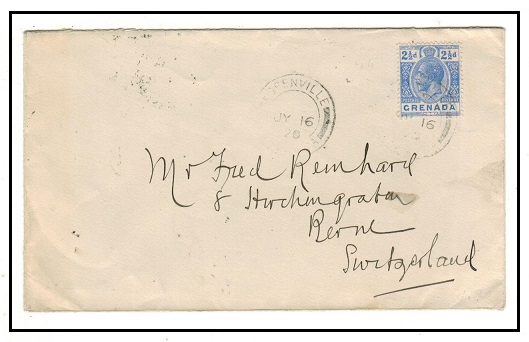 2½d 2½d
GRENADA
RENVILLE
JY 16
26
16
Mr Fred Reinhard
8 Hirschengraben
Berne
Switzerland